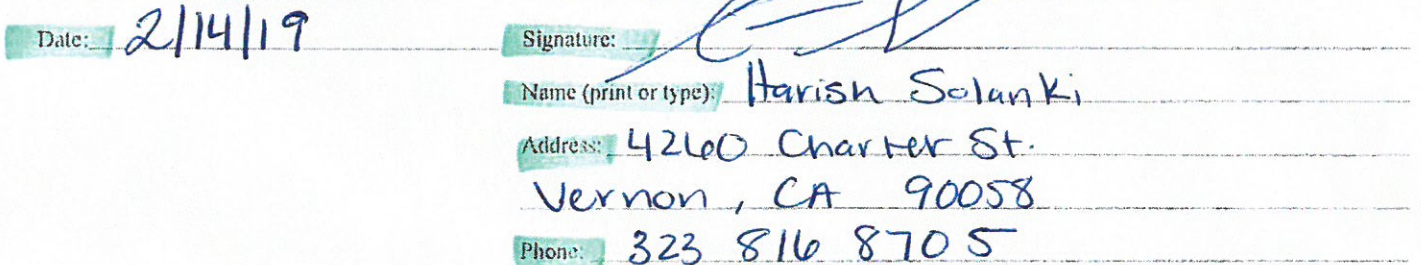 Date: 2/14/19
Signature:
Name (print or type): Harish Solanki
Address: 4260 Charter St.
Vernon, CA 90058
Phone: 323 816 8705